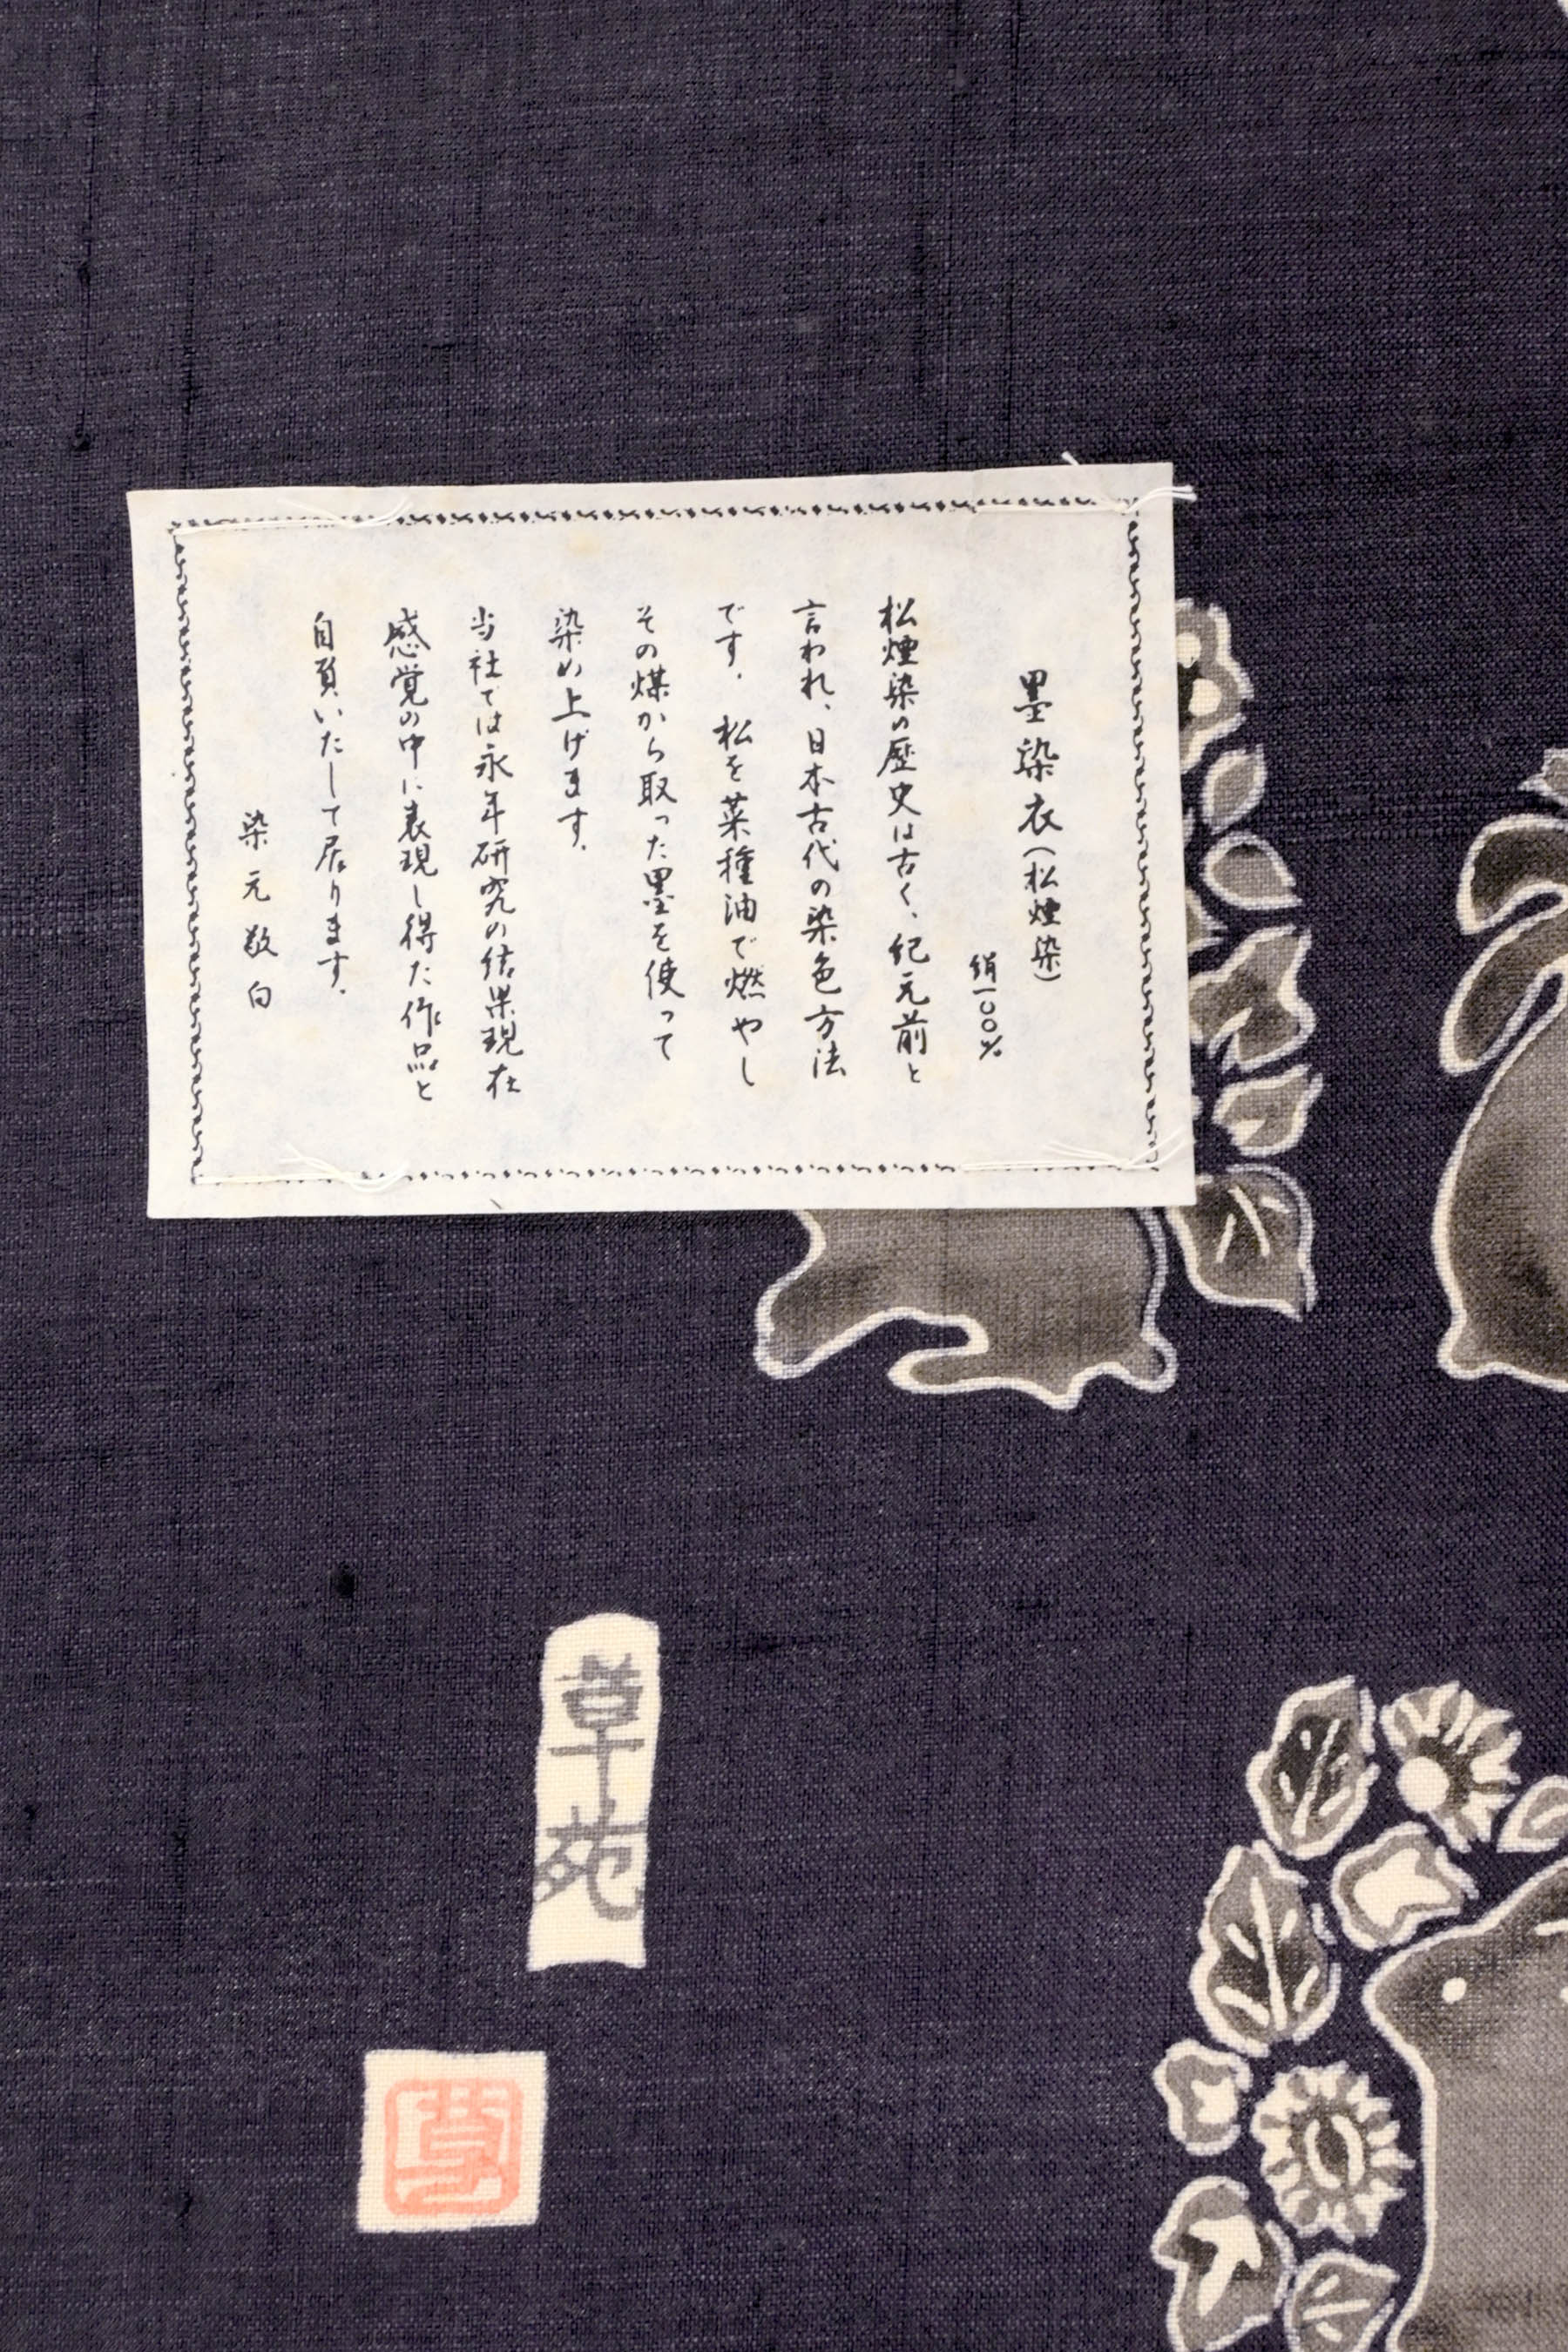 墨染衣(松煙染)
絹一〇〇%
松煙染の歴史は古く、紀元前と
言われ、日本古代の染色方法
です。松を菜種油で燃やし
その煤から取った墨を使って
染め上げます。
当社では永年研究の結果現在
感覚の中に表現し得た作品と
自負いたして居ります。
染元敬白
草苑